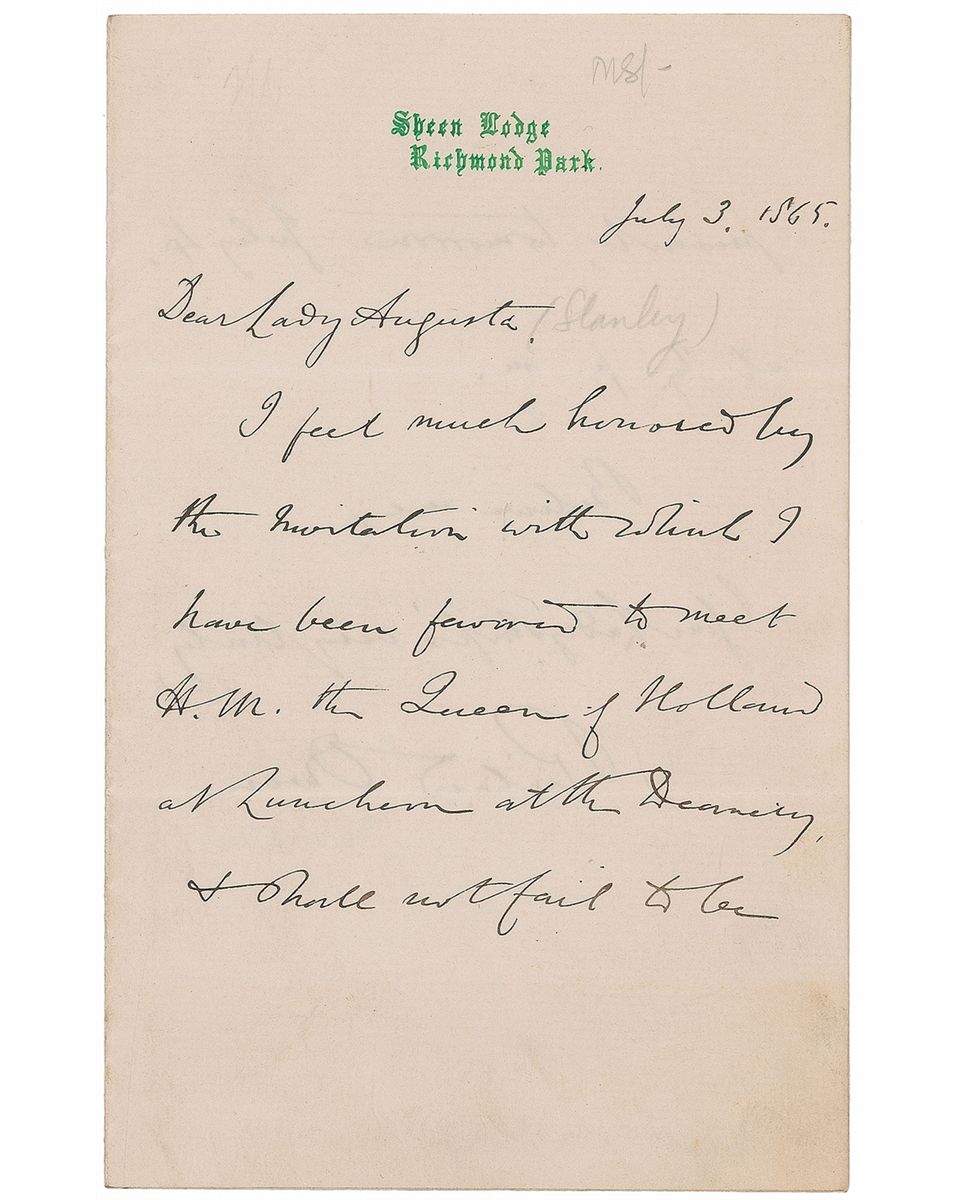 Sheen Lodge
Richmond Park.
July 3. 1865.
Dear Lady Augusta, (Stanley)
I feel much honored by
the Invitation with which I
have been favored to meet
H.M. the Queen of Holland
at Luncheon at the Deanery,
& shall not fail to be